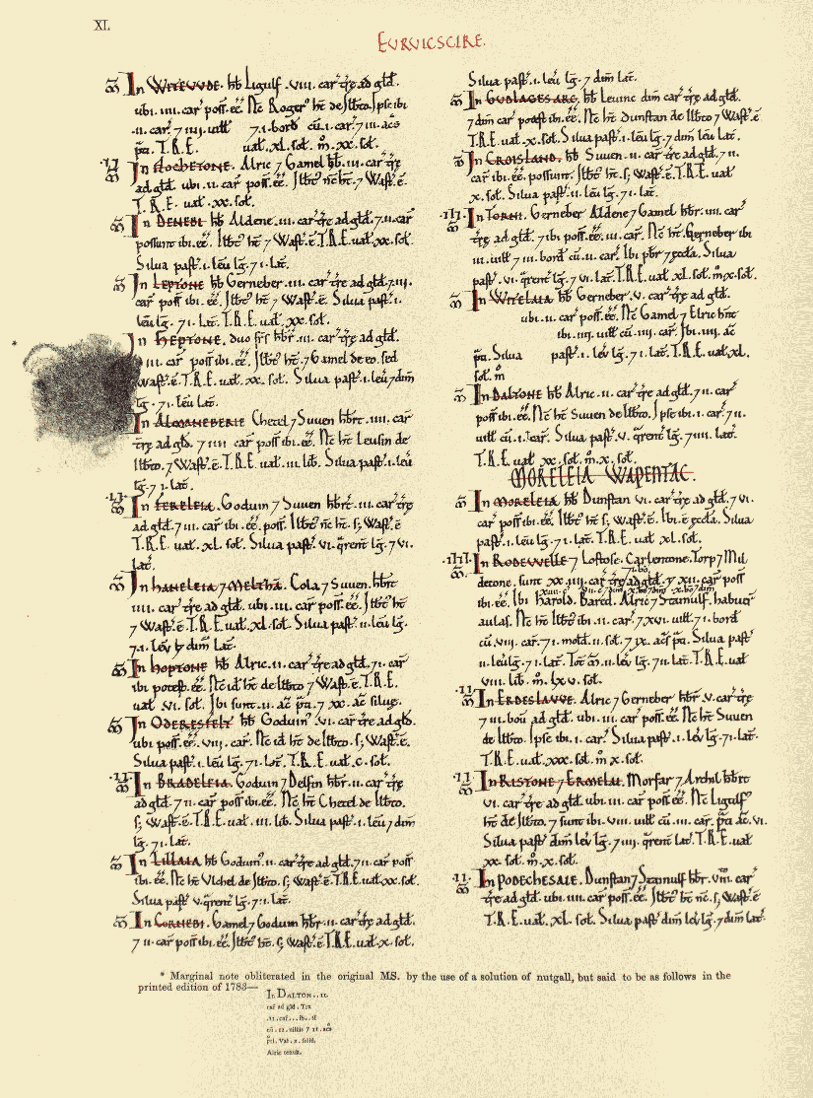 XI.
EURVICSCIRE.
ⲙ̄ In WITEUUDE. hb̄ Ligulf .VIII. car̄ tr̄e ad gld̄.
ubi .IIII. car̄ poss̄. eē. Nc̄ Roger⁹ ht̄ de Ilbt̄o. Ipse ibi
.II. car̄. 7 IIII. uill̄ 7.I. bord̄ cū .I. car̄. 7 III. ac̄s
p̄ti. T.R.E. ual̄ .XL. sol̄. m̊ .XX. sol̄.
.II. In HOCHETONE. Alric 7 Gamel hb̄. III. car̄ tr̄e
ad gld̄. ubi .II. car̄ poss̄. eē. Ilbt̄⁹ nc̄ ht̄. 7 Wast̄. ē.
T.R.E. ual̄ .XX. sol̄.
In DENEBI hb̄ Aldene .III. car̄ tr̄e ad gld̄. 7 .II. car̄
possunt ibi. eē. Ilbt̄⁹ ht̄ 7 Wast̄. ē. T.R.E. ual̄. XX. sol̄.
Silua past̄. I. leū lḡ. 7 I. lat̄.
In LEPTONE hb̄ Gerneber .III. car̄ tr̄e ad gld̄. 7 .III.
car̄ poss̄ ibi. eē. Ilbt̄⁹ ht̄ 7 Wast̄. ē. Silua past̄. I.
leū lḡ. 7 I. lat̄. T.R.E. ual̄. XX. sol̄.
* In HEPTONE. duo fr̄s hb̄r .III. car̄ tr̄e ad gld̄.
III. car̄ poss̄ ibi. eē. Ilbt̄⁹ ht̄. 7 Gamel de eo. sed
Wast̄. ē. T.R.E. ual̄. XX. sol̄. Silua past̄. I. leū 7 dim̄
lḡ. 7 I. leū lat̄.
In ALMANEBERIE Chetel 7 Suuen hb̄r̄t .IIII. car̄
tr̄e ad gld̄. 7 IIII car̄ poss̄ ibi. eē. Nc̄ ht̄ Leusin de
Ilbt̄o. 7 Wast̄. ē. T.R.E. ual̄. III. lib̄. Silua past̄. I. leū
lḡ. 7 I. lat̄.
.II. In FERELEIA. Goduin 7 Suuen hb̄r̄t. III. car̄ tr̄e
ad gld̄. 7 III. car̄ ibi. eē. poss̄. Ilbt̄⁹ nc̄ ht. s; Wast̄. ē
T.R.E. ual̄. XL. sol̄. Silua past̄. VI. q̄rent̄ lḡ. 7 VI.
lat̄.
In HANELEIA 7 MELTHA. Cola 7 Suuen hb̄r̄t
IIII. car̄ tr̄e ad gld̄. ubi .III. car̄ poss̄. eē. Ilbt̄⁹ ht̄
7 Wast̄. ē. T.R.E. ual̄. XL. sol̄. Silua past̄. II. leū lḡ.
7 I. leū 7 dim̄ lat̄.
In HOPTONE hb̄ Alric. II. car̄ tr̄e ad gld̄. 7 I. car̄
ibi potest. eē. Nc̄ id̄ ht̄ de Ilbt̄o 7 Wast̄. ē. T.R.E.
ual̄. VI. sol̄. Ibi sunt. II. ac̄ p̄ti. 7 XX. ac̄ silue.
In ODERESFELT hb̄ Goduin⁹ .VI. car̄ tr̄e ad gld̄.
ubi poss̄. eē. VIII. car̄. Nc̄ id̄ ht̄ de Ilbt̄o. s; Wast̄. ē.
Silua past̄. I. leū lḡ. 7 I. lat̄. T.R.E. ual̄. C. sol̄.
.II. In BRADELEIA. Goduin 7 Delfin hb̄r̄. III. car̄ tr̄e
ad gld̄. 7 II. car̄ poss̄ ibi. eē. Nc̄ ht̄ Chetel de Ilbt̄o.
s; Wast̄. ē. T.R.E. ual̄. III. lib̄. Silua past̄. I. leū 7 dim̄
lḡ. 7 I. lat̄.
In LILLAIA hb̄ Goduin⁹. II. car̄ tr̄e ad gld̄. 7 I. car̄ poss̄
ibi. eē. Nc̄ ht̄ Vlchel de Ilbt̄o. s; Wast̄. ē. T.R.E. ual̄. XX. sol̄.
Silua past̄ V. q̄rent̄ lḡ. 7 I. lat̄.
In CORNEBI. Gamel 7 Goduin hb̄r̄. II. car̄ tr̄e ad gld̄.
7 II. car̄ poss̄ ibi. eē. Ilbt̄⁹ ht̄. s; Wast̄. ē. T.R.E. ual̄. X. sol̄.
Silua past̄. I. leū lḡ. 7 dim̄ lat̄.
In GUDLAGESARC, hb̄ Leuinc dim̄ car̄ tr̄e ad gld̄.
7 dim̄ car̄ potest ibi. eē. Nc̄ ht̄ Dunstan de Ilbt̄o 7 Wast̄. ē
T.R.E. ual̄. X. sol̄. Silua past̄. I. leū lḡ. 7 dim̄ leū lat̄.
In CROISLAND. hb̄ Suuen. II. car̄ tr̄e ad gld̄. 7 II.
car̄ ibi. eē. possunt. Ilbt̄⁹ ht̄. s; Wast̄. ē. T.R.E. ual̄
X. sol̄. Silua past̄. II. leū lḡ. I. lat̄.
.III. In TORNI. Gerneber Aldene 7 Gamel hb̄r̄. III. car̄
tr̄e ad gld̄. 7 ibi poss̄. eē. II. car̄. Nc̄ ht̄. Gerneber ibi
III. uill̄ 7 III. bord̄ cū II. car̄. Ibi pb̄r 7 ecclā. Silua
past̄. VI. q̄rent̄ lḡ. 7 VI. lat̄. T.R.E. ual̄ XL. sol̄. m̊ X. sol̄.
In WITELAIA hb̄ Gerneber. V. car̄ tr̄e ad gld̄.
ubi. III. car̄ poss̄. eē. Nc̄ Gamel 7 Elric ht̄
ibi. IIII. uill̄ cū. IIII. car̄. Ibi. IIII. ac̄
p̄ti. Silua past̄. I. leū lḡ. 7 I. lat̄. T.R.E. ual̄. XL.
sol̄. m̊
In DALTONE hb̄ Alric. II. car̄ tr̄e ad gld̄. 7 II. car̄
poss̄ ibi. eē. Nc̄ ht̄ Suuen de Ilbt̄o. Ipse ibi. I. car̄. 7 II.
uill̄ cū. I. car̄. Silua past̄. V. q̄rent̄ lḡ. 7 IIII. lat̄.
T.R.E. ual̄ XX. sol̄. m̊. X. sol̄.
MORELEIA WAPENTAC.
In MORELEIA hb̄ Dunstan VI. car̄ tr̄e ad gld̄. 7 VI.
car̄ poss̄ ibi. eē. Ilbt̄⁹ ht̄. s; Wast̄. ē. Ibi. ē ecclā. Silua
past̄. I. leū lḡ. 7 I. lat̄. T.R.E. ual̄. XL. sol̄.
.IIII. In RODEWELLE 7 Loftose. Carlentone. Torp 7 Mil
detone. sunt XX.IIII. car̄ tr̄e ad gld̄. 7 XII. car̄ poss̄
ibi. eē. Ibi Harold. Bared. Alric 7 Stainulf. habuer̄
aulas. Nc̄ ht̄ Ilbt̄⁹ ibi. II. car̄. 7 XXVI. uill̄. 7 I. bord̄
cū. VIII. car̄. 7 I. mold̄. II. sol̄. 7 IX. ac̄s p̄ti. Silua past̄
II. leū lḡ. 7 I. lat̄. Tot̄ m̄. II. leū lḡ. 7 II. lat̄. T.R.E. ual̄
VIII. lib̄. m̊. LXV. sol̄.
.II. In ERDESLAUUE. Alric 7 Gerneber hb̄r̄. V. car̄ tr̄e
7 III. bou̅. ad gld̄. ubi III. car̄ poss̄. eē. Nc̄ ht̄ Suuen
de Ilbt̄o. Ipse ibi. I. car̄. Silua past̄. I. leū lḡ. 7 I. lat̄.
T.R.E. ual̄. XXX. sol̄. m̊ X. sol̄.
.II. In RISTONE 7 ERMELAI. Morfar 7 Archil hb̄r̄t
VI. car̄ tr̄e ad gld̄. ubi. III. car̄ poss̄. eē. Nc̄ Ligulf⁹
ht̄ de Ilbt̄o. 7 sunt ibi. VIII. uill̄ cū. III. car̄. p̄ti ac̄. VI.
Silua past̄ dim̄ leū lḡ. 7 IIII. q̄rent̄ lat̄. T.R.E. ual̄
XX. sol̄. m̊. X. sol̄.
.II. In PODECHESAIE. Dunstan 7 Stainulf hb̄r̄. VIII. car̄
tr̄e ad gld̄. ubi. IIII. car̄ poss̄. eē. Ilbt̄⁹ ht̄ nc̄. s; Wast̄. ē
T.R.E. ual̄. XL. sol̄. Silua past̄ dim̄ leū lḡ. 7 dim̄ lat̄.
* Marginal note obliterated in the original MS. by the use of a solution of nutgall, but said to be as follows in the
printed edition of 1783—
In DALTON . . II.
car̄ ad gld̄. Tra
.II. car̄
cū . II. uillis 7 II. ac̄s
p̄ti. Val. X. solid.
Alric tenuit.